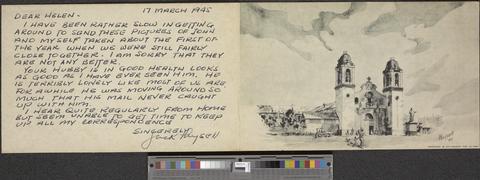 17 MARCH 1945
DEAR HELEN -
I HAVE BEEN RATHER SLOW IN GETTING
AROUND TO SEND THESE PICTURES OF JOHN
AND MYSELF TAKEN ABOUT THE FIRST OF
THE YEAR WHEN WE WERE STILL FAIRLY
CLOSE TOGETHER. I AM SORRY THAT THEY
ARE NOT ANY BETTER.
YOUR HUBBY IS IN GOOD HEALTH LOOKS
AS GOOD AS I HAVE EVER SEEN HIM. HE
IS TERRIBLY LONELY LIKE MOST OF US ARE
FOR AWHILE HE WAS MOVING AROUND SO
MUCH THAT HIS MAIL NEVER CAUGHT
UP WITH HIM.
I HEAR QUITE REGULARLY FROM HOME
BUT SEEM UNABLE TO GET TIME TO KEEP
UP ALL MY CORRESPONDENCE
SINCERELY,
Jack